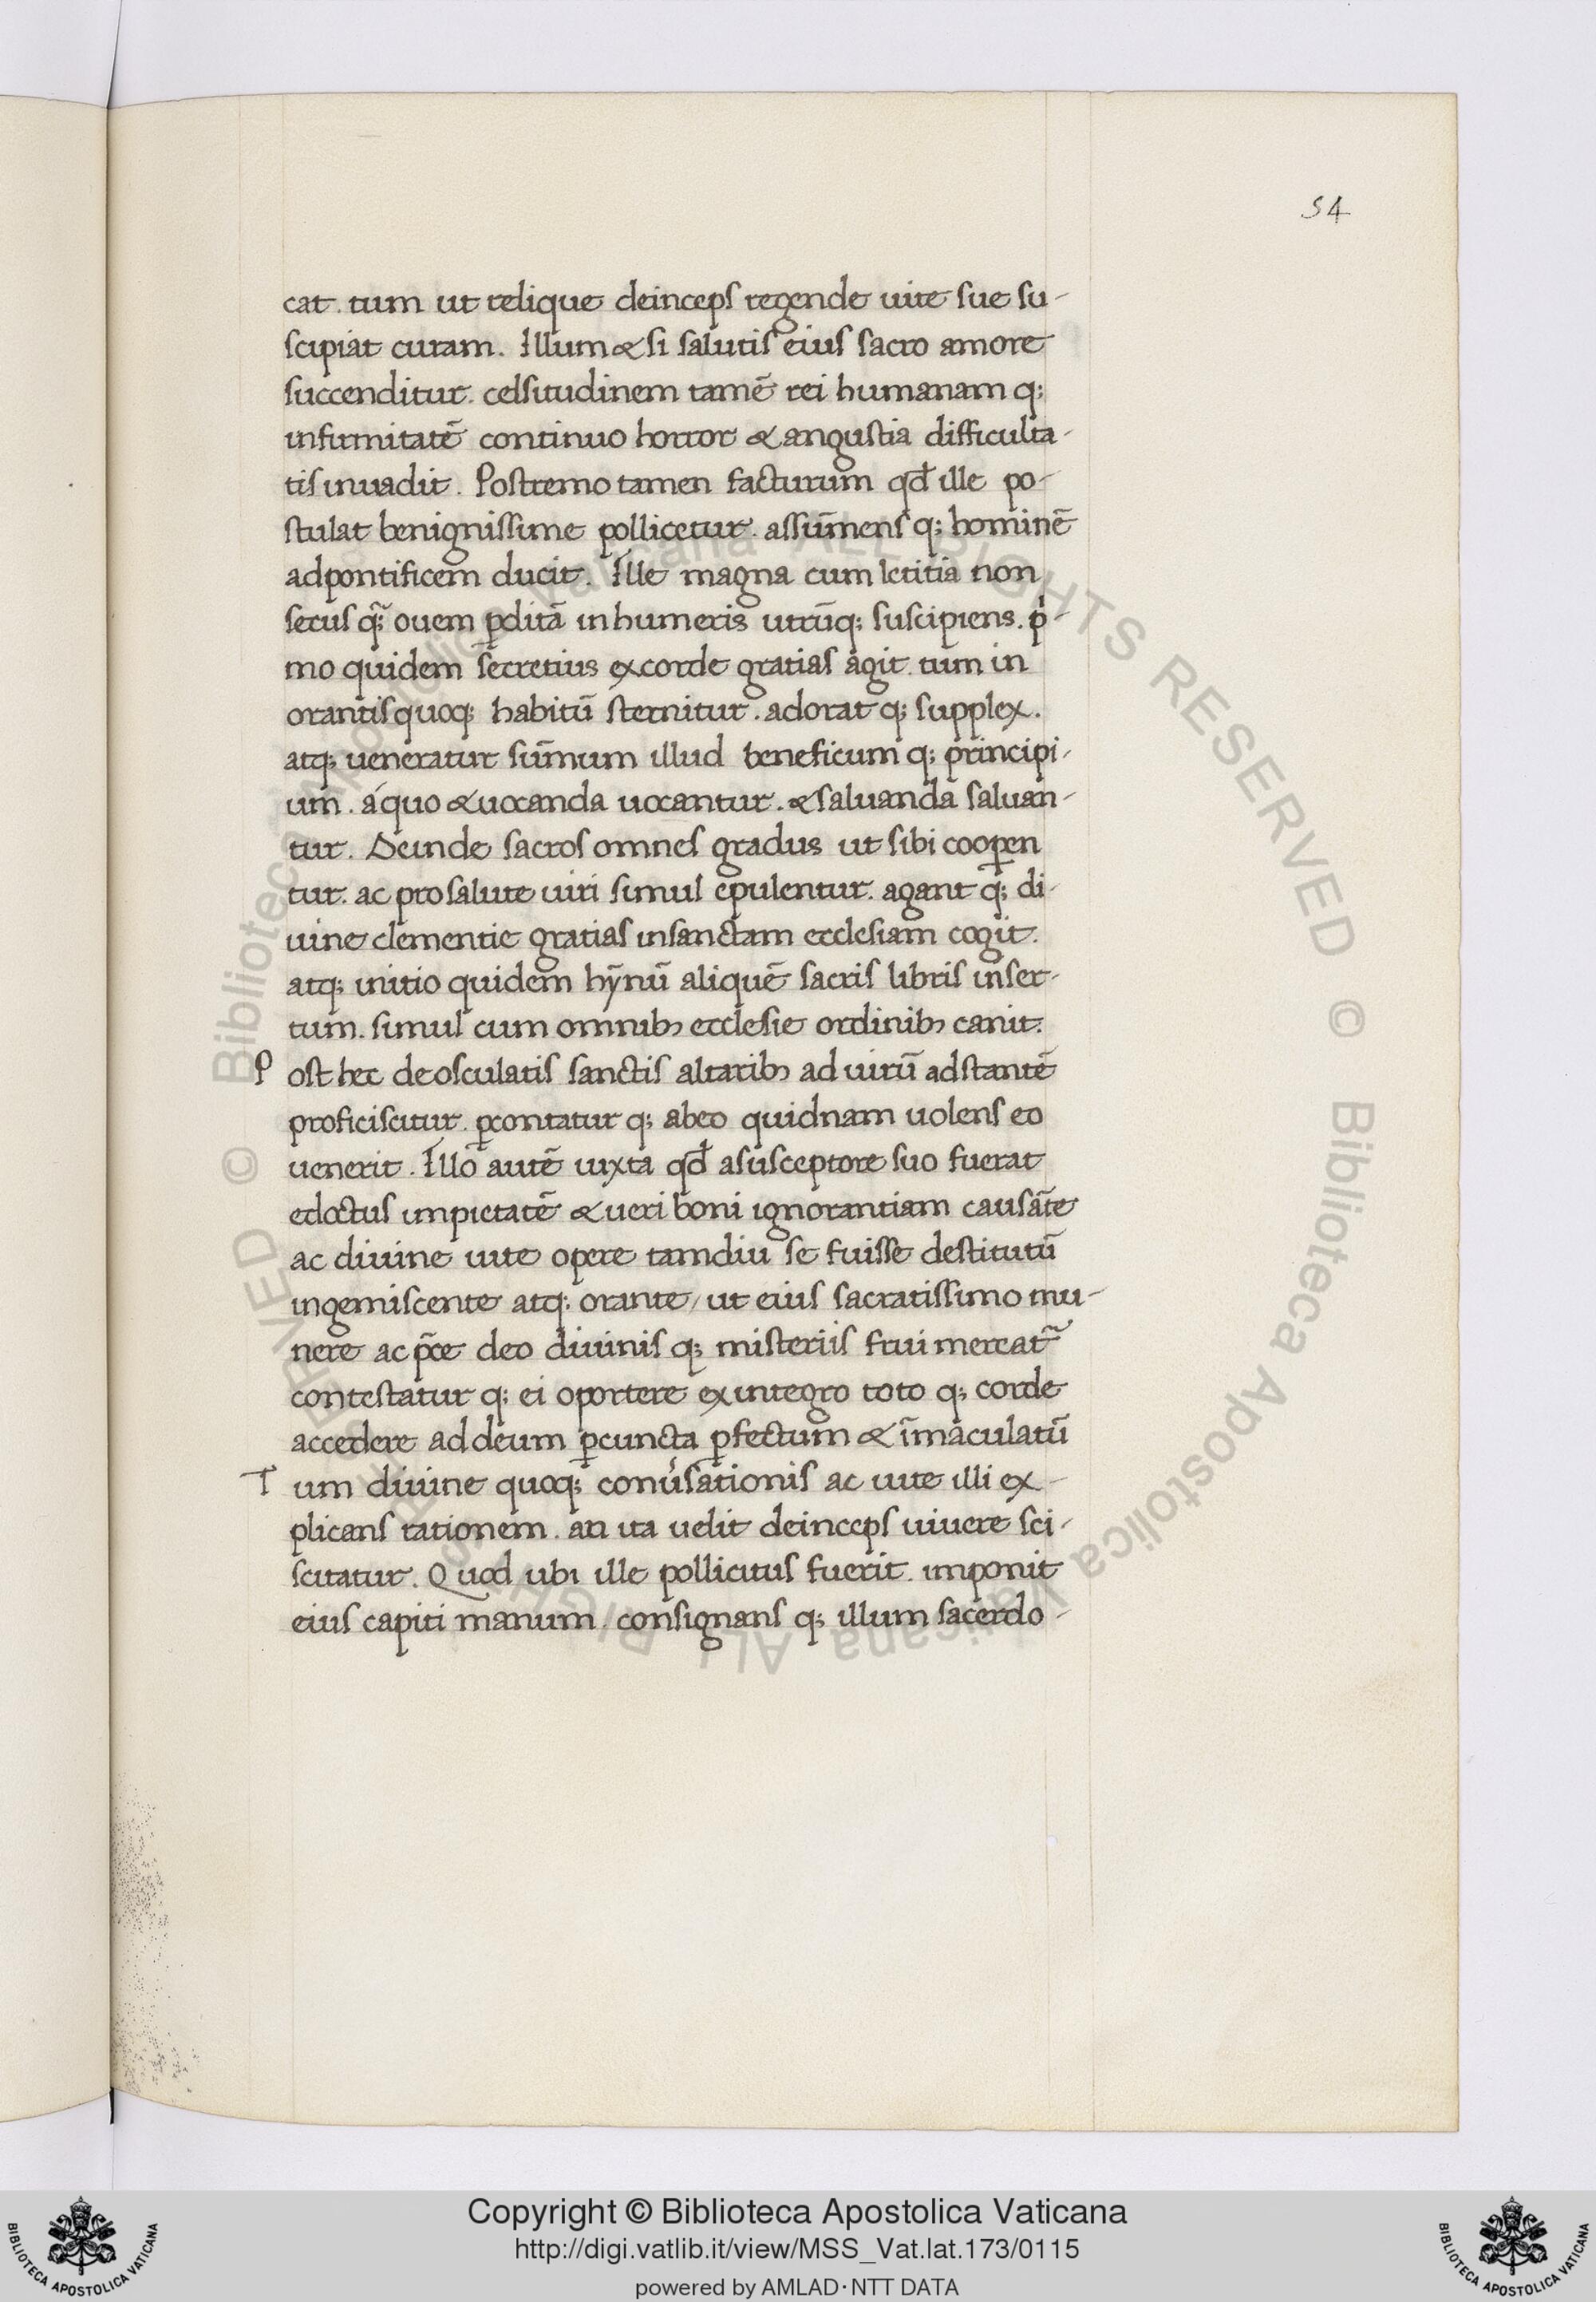 54
cat. tum ut relique deinceps regende uite sue su-
scipiat curam. Illum & si salutis eius sacro amore
succenditur. celsitudinem tamē rei humanam q;
infirmitatē continuo horror & angustia difficulta-
tis inuadit. Postremo tamen facturum qđ ille po-
stulat benignissime pollicetur. assūmens q; hominē
ad pontificem ducit. Ille magna cum letitia non
secus q̃; ouem ꝑditā in humeris utrūq; suscipiens. pⁱ-
mo quidem secretius ex corde gratias agit. tum in
orantis quoq; habitū sternitur. adorat q; supplex.
atq; ueneratur sūmum illud beneficum q; principi-
um. á quo & uocanda uocantur. & saluanda saluan-
tur. Deinde sacros omnes gradus ut sibi cooꝑen
tur. ac pro salute uiri simul epulentur. agant q; di-
uine clementie gratias in sanctam ecclesiam cogit.
atq; initio quidem hȳnū aliquē sacris libris inser-
tum. simul cum omnibꝫ ecclesie ordinibꝫ canit.
Post hec deosculatis sanctis altaribꝫ ad uirū adstantē
proficiscitur. ꝑcontatur q; ab eo quidnam uolens eo
uenerit. Illo autē iuxta qđ a susceptore suo fuerat
edoctus impietatē & ueri boni ignorantiam causāte
ac diuine uite opere tamdiu se fuisse destitutū
ingemiscente atq; orante / ut eius sacratissimo mu-
nere ac p̄ce deo diuinis q; misteriis frui mereat᷑
contestatur q; ei oportere ex integro toto q; corde
accedere ad deum ꝑ cuncta ꝑfectum & īmaculatū
Tum diuine quoq; conu͛sationis ac uite illi ex-
plicans rationem. an ita uelit deinceps uiuere sci-
scitatur. Quod ubi ille pollicitus fuerit. imponit
eius capiti manum. consignans q; illum sacerdo-
© Biblioteca Apostolica Vaticana ALL RIGHTS RESERVED © Biblioteca Apostolica Vaticana ALL RIGHTS RESERVED
Copyright © Biblioteca Apostolica Vaticana
http://digi.vatlib.it/view/MSS_Vat.lat.173/0115
powered by AMLAD·NTT DATA
BIBLIOTECA APOSTOLICA VATICANA
BIBLIOTECA APOSTOLICA VATICANA